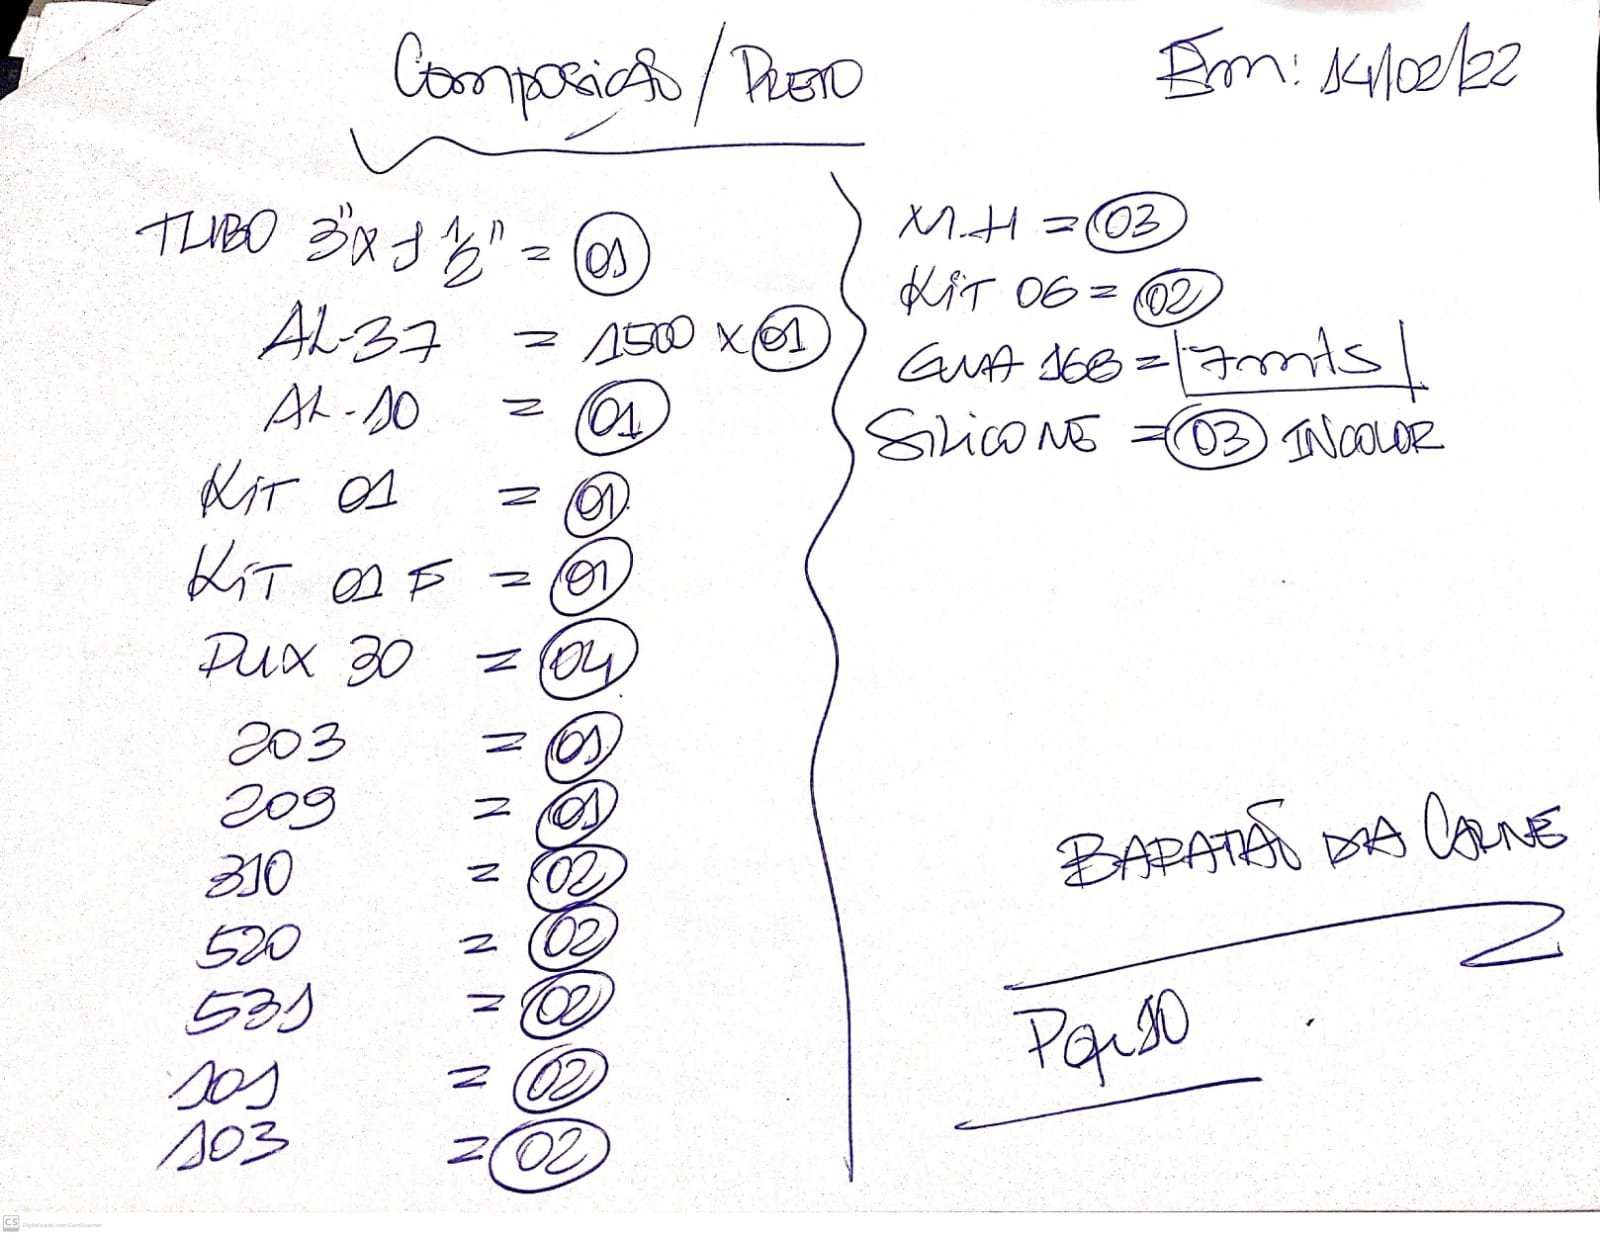 Composição / PRETO
Em: 14/02/22
TUBO 3" X 1 1/2" = 01
AL-37 = 1500 X 01
AL-10 = 01
KiT 01 = 01
KiT 01 F = 01
PUX 30 = 04
203 = 01
209 = 01
310 = 02
520 = 02
531 = 02
101 = 02
103 = 02
M.H = 03
KiT 06 = 02
= 7 mts
SiLiCONE = 03 INCOLOR
BARATÃO DA CARNE
CS Digitalizado com CamScanner